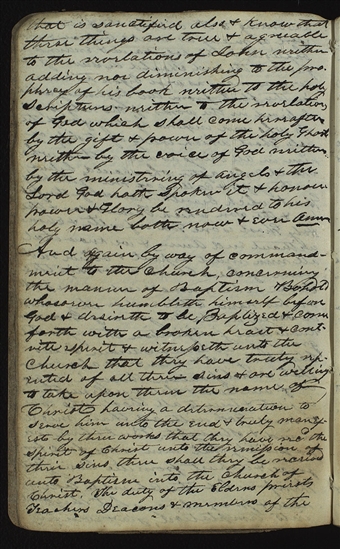 that is sanctified also & know that
these things are true & agreeable
to the revelations of John neither
adding nor diminishing to the pro
phecy of his book neither to the holy
Scriptures neither to the revelations
of God which shall come hereafter
by the gift & power of the holy Ghost
neither by the voice of God neither
by the ministering of angels & the
Lord God hath Spoken it & honour
power & Glory be rendered to his
holy name both now & ever Amen
And again by way of command-
ment to the Church, concerning
the manner of Baptism Behold
whosoever humbleth himself before
God & desireth to be Baptized & come
forth with a broken heart & cont-
rite spirit & witnesseth unto the
Church that they have truly rep
ented of all their sins & are willing
to take upon them the name of
Christ having a determination to
serve him unto the end & truly manif
ests by their works that they have re^c the
spirit of Christ unto the remission of
their sins then shall they be received
unto Baptism into the Church of
Christ. The duty of the Elders priests
Teachers Deacons & members of the